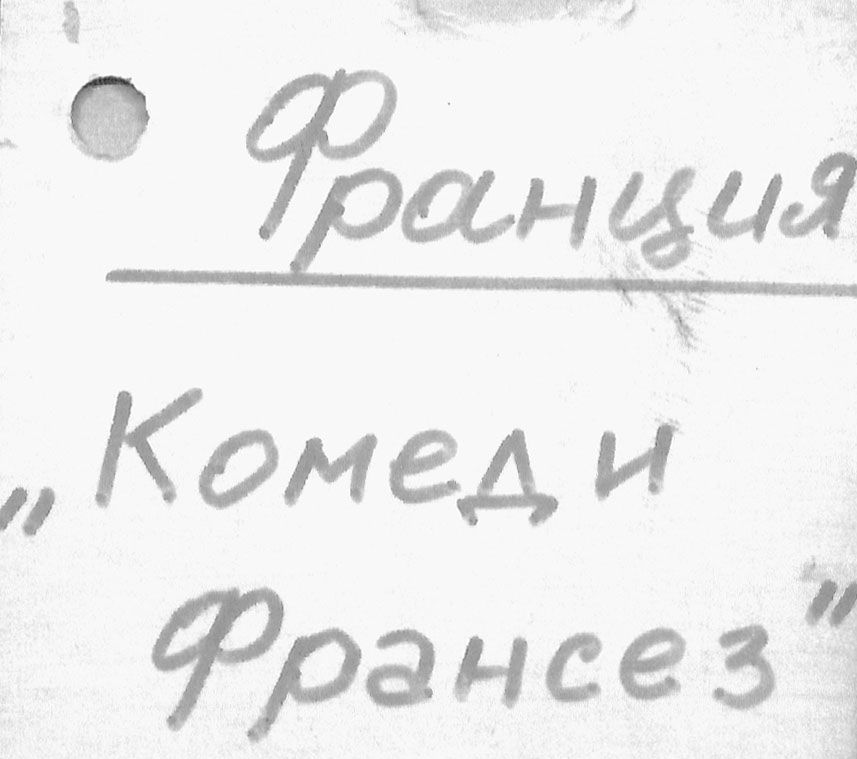 Франция
„Комеди
Франсез”